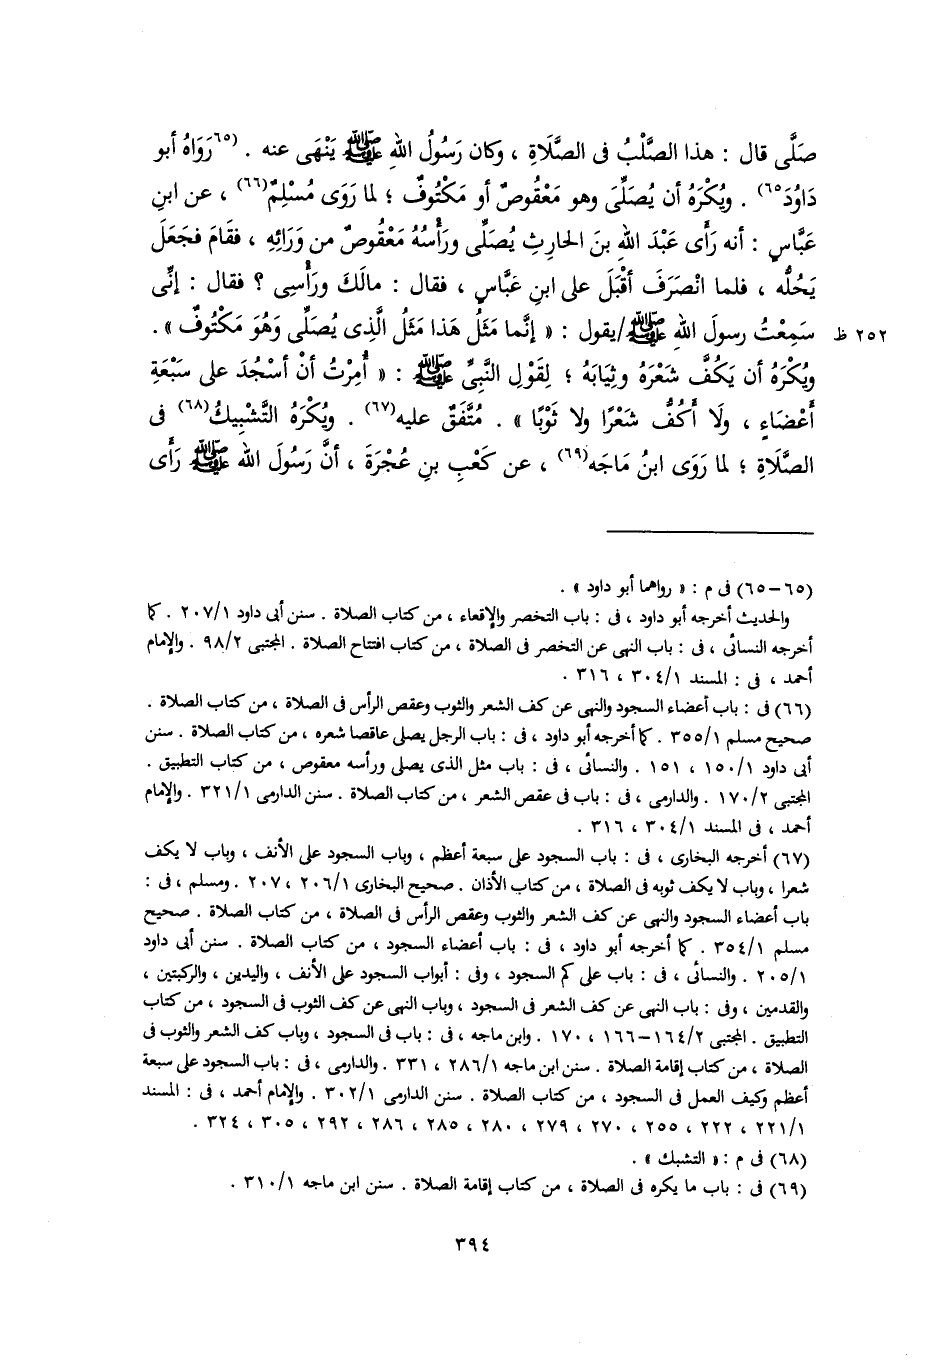 صَلَّى قال : هذا الصَّلْبُ فى الصَّلَاةِ ، وكان رَسُولُ اللهِ ﷺ يَنْهَى عنه . (٦٥رَوَاهُ أبو
دَاوُدَ٦٥) . ويُكْرَهُ أن يُصَلِّىَ وهو مَعْقُوصٌ أو مَكْتُوفٌ ؛ لما رَوَى مُسْلِمٌ(٦٦) ، عن ابنِ
عَبَّاسٍ : أنه رَأَى عَبْدَ اللهِ بنَ الحارِثِ يُصَلِّى ورَأْسُهُ مَعْقُوصٌ من وَرَائِهِ ، فقَامَ فجَعَلَ
يَحُلُّه ، فلما انْصَرَفَ أقْبَلَ على ابنِ عَبَّاسٍ ، فقال : مالَكَ ورَأْسِى ؟ فقال : إنِّى
سَمِعْتُ رسولَ اللهِ ﷺ/يقول : « إنَّما مَثَلُ هَذا مَثَلُ الَّذِى يُصَلِّى وَهُوَ مَكْتُوفٌ » . ٢٥٢ ظ
ويُكْرَهُ أن يَكُفَّ شَعْرَهُ وثِيَابَهُ ؛ لِقَوْلِ النَّبِىِّ ﷺ : « أُمِرْتُ أنْ أسْجُدَ على سَبْعَةِ
أَعْضَاءٍ ، ولَا أَكُفَُّ شَعْرًا ولا ثَوْبًا » . مُتَّفَقٌ عليه(٦٧) . ويُكْرَهُ التَّشْبِيكُ(٦٨) فى
الصَّلَاةِ ؛ لما رَوَى ابنُ مَاجَه(٦٩) ، عن كَعْبِ بنِ عُجْرَةَ ، أنَّ رَسُولَ اللهِ ﷺ رَأَى
(٦٥-٦٥) فى م : « رواهما أبو داود » .
والحديث أخرجه أبو داود ، فى : باب التخصر والإقعاء ، من كتاب الصلاة . سنن أبى داود ٢٠٧/١ . كما
أخرجه النسائى ، فى : باب النهى عن التخصر فى الصلاة ، من كتاب افتتاح الصلاة . المجتبى ٩٨/٢ . والإمام
أحمد ، فى : المسند ٣٠٤/١ ، ٣١٦ .
(٦٦) فى : باب أعضاء السجود والنهى عن كف الشعر والثوب وعقص الرأس فى الصلاة ، من كتاب الصلاة .
صحيح مسلم ٣٥٥/١ . كما أخرجه أبو داود ، فى : باب الرجل يصلى عاقصا شعره ، من كتاب الصلاة . سنن
أبى داود ١٥٠/١ ، ١٥١ . والنسائى ، فى : باب مثل الذى يصلى ورأسه معقوص ، من كتاب التطبيق .
المجتبى ١٧٠/٢ . والدارمى ، فى : باب فى عقص الشعر ، من كتاب الصلاة . سنن الدارمى ٣٢١/١ . والإمام
أحمد ، فى المسند ٣٠٤/١ ، ٣١٦ .
(٦٧) أخرجه البخارى ، فى : باب السجود على سبعة أعظم ، وباب السجود على الأنف ، وباب لا يكف
شعرا ، وباب لا يكف ثوبه فى الصلاة ، من كتاب الأذان . صحيح البخارى ٢٠٦/١ ، ٢٠٧ . ومسلم ، فى :
باب أعضاء السجود والنهى عن كف الشعر والثوب وعقص الرأس فى الصلاة ، من كتاب الصلاة . صحيح
مسلم ٣٥٤/١ . كما أخرجه أبو داود ، فى : باب أعضاء السجود ، من كتاب الصلاة . سنن أبى داود
٢٠٥/١ . والنسائى ، فى : باب على كم السجود ، وفى : أبواب السجود على الأنف ، واليدين ، والركبتين ،
والقدمين ، وفى : باب النهى عن كف الشعر فى السجود ، وباب النهى عن كف الثوب فى السجود ، من كتاب
التطبيق . المجتبى ١٦٤/٢-١٦٦ ، ١٧٠ . وابن ماجه ، فى : باب فى السجود ، وباب كف الشعر والثوب فى
الصلاة ، من كتاب إقامة الصلاة . سنن ابن ماجه ٢٨٦/١ ، ٣٣١ . والدارمى ، فى : باب السجود على سبعة
أعظم وكيف العمل فى السجود ، من كتاب الصلاة . سنن الدارمى ٣٠٢/١ . والإمام أحمد ، فى : المسند
٢٢١/١ ، ٢٢٢ ، ٢٥٥ ، ٢٧٠ ، ٢٧٩ ، ٢٨٠ ، ٢٨٥ ، ٢٨٦ ، ٢٩٢ ، ٣٠٥ ، ٣٢٤ .
(٦٨) فى م : « التشبك » .
(٦٩) فى : باب ما يكره فى الصلاة ، من كتاب إقامة الصلاة . سنن ابن ماجه ٣١٠/١ .
٣٩٤